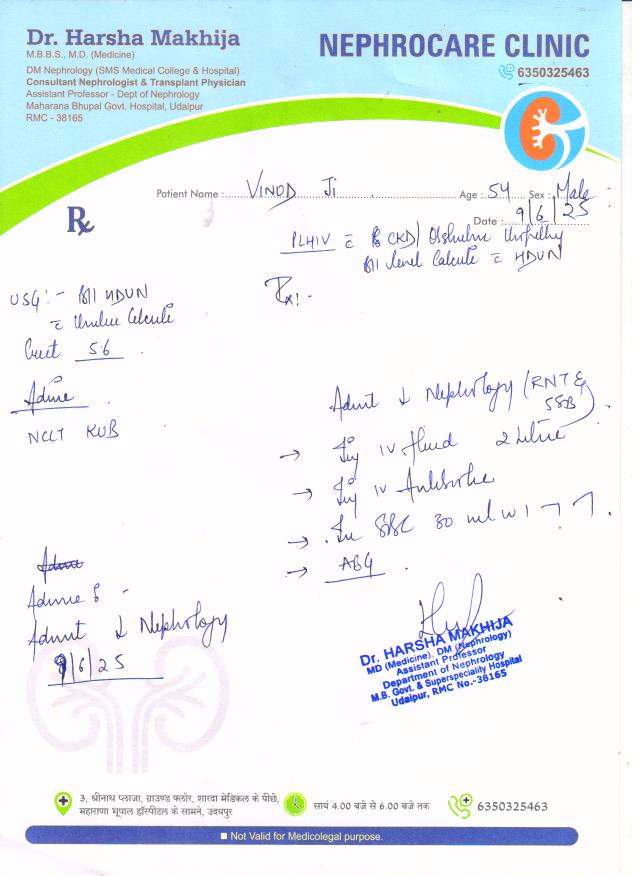 Dr. Harsha Makhija
M.B.B.S., M.D. (Medicine)
DM Nephrology (SMS Medical College & Hospital)
Consultant Nephrologist & Transplant Physician
Assistant Professor - Dept of Nephrology
Maharana Bhupal Govt. Hospital, Udaipur
RMC - 38165
NEPHROCARE CLINIC
6350325463
Patient Name : VINOD Ji Age : 54 Sex : Male
Date : 9/6/25
Rx
PLHIV c CKD/
B/l calculi c HDUN
USG :- B/l HDUN
c calculi
Creat 5.6
Rx :-
Advice
NCCT KUB
Admit Nephrology (RNT &
SSB)
→ Inj IV fluid 2 litre
→ Inj IV
→ 30 ml
→ ABG
Advice
Admit Nephrology
9/6/25
Dr. HARSHA MAKHIJA
MD (Medicine), DM (Nephrology)
Assistant Professor
Department of Nephrology
M.B. Govt. & Superspeciality Hospital
Udaipur, RMC No.-38165
3, श्रीनाथ प्लाजा, ग्राउण्ड फ्लोर, शारदा मेडिकल के पीछे,
महाराणा भूपाल हॉस्पीटल के सामने, उदयपुर
सायं 4.00 बजे से 6.00 बजे तक
6350325463
Not Valid for Medicolegal purpose.